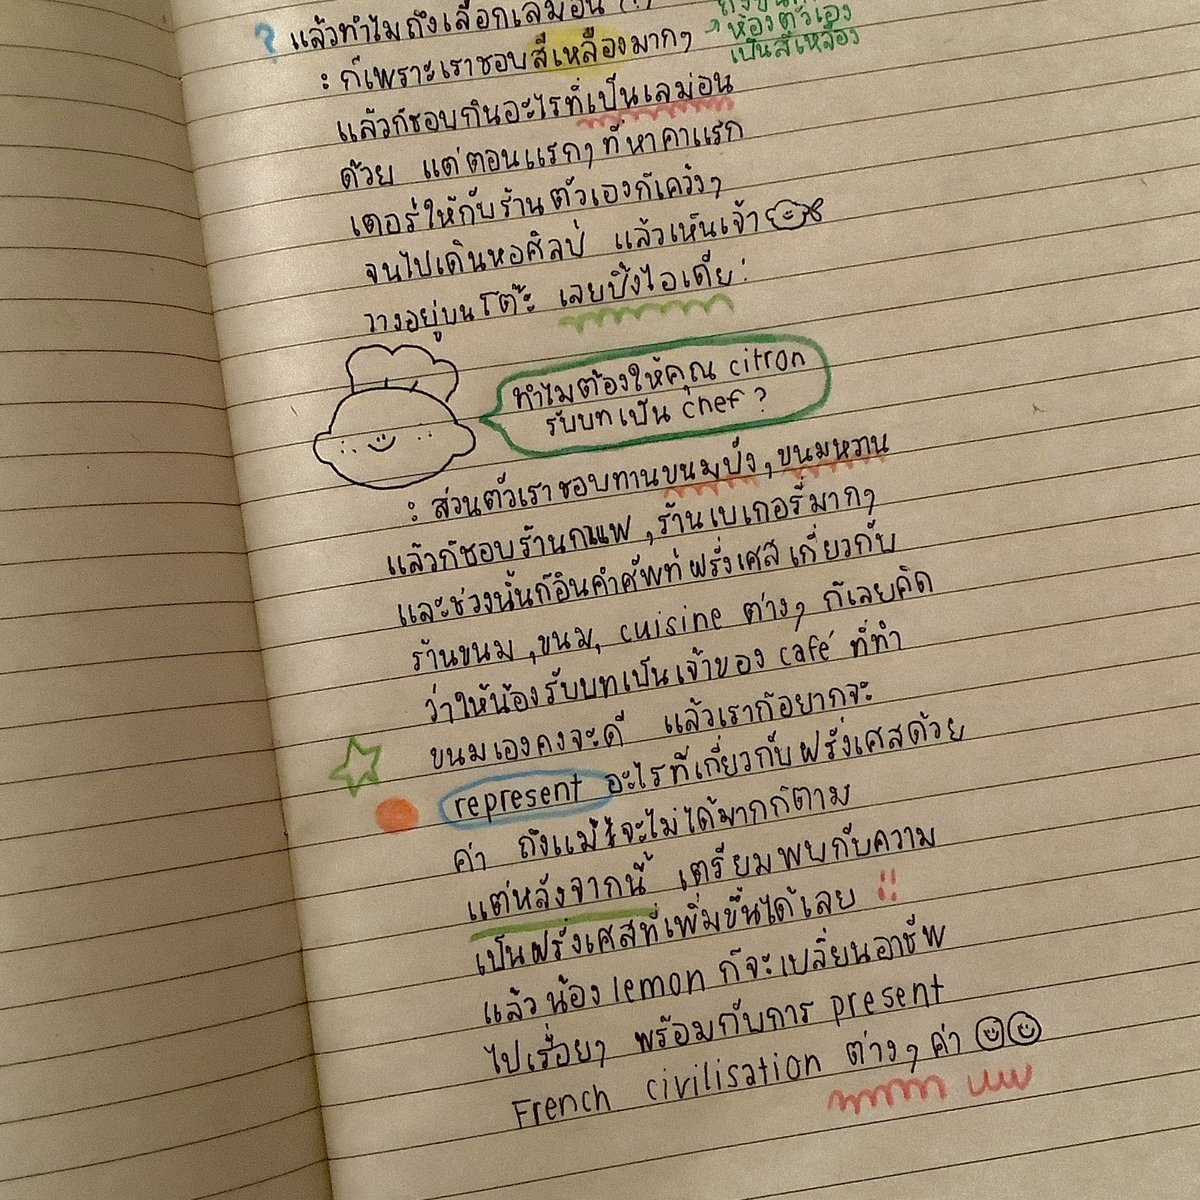 ? แล้วทำไมถึงเลือกเลมอน
ห้องตัวเอง
เป็นสีเหลือง
: ก็เพราะเราชอบสีเหลืองมากๆ
แล้วก็ชอบกินอะไรที่เป็นเลม่อน
ด้วย แต่ตอนแรกๆ ที่หาคาแรก
เตอร์ให้กับร้านตัวเองก็เคว้งๆ
จนไปเดินหอศิลป์ แล้วเห็นเจ้า
วางอยู่บนโต๊ะ เลยปิ๊งไอเดีย!
ทำไมต้องให้คุณ citron
รับบทเป็น chef ?
: ส่วนตัวเราชอบทานขนมปัง, ขนมหวาน
แล้วก็ชอบร้านกาแฟ, ร้านเบเกอรี่มากๆ
และช่วงนั้นก็อินคำศัพท์ฝรั่งเศสเกี่ยวกับ
ร้านขนม, ขนม, cuisine ต่างๆ ก็เลยคิด
ว่าให้น้องรับบทเป็นเจ้าของ café ที่ทำ
ขนมเองคงจะดี แล้วเราก็อยากจะ
represent อะไรที่เกี่ยวกับฝรั่งเศสด้วย
ค่า ถึงแม้จะไม่ได้มากก็ตาม
แต่หลังจากนี้ เตรียมพบกับความ
เป็นฝรั่งเศสที่เพิ่มขึ้นได้เลย !!
แล้วน้อง lemon ก็จะเปลี่ยนอาชีพ
ไปเรื่อยๆ พร้อมกับการ present
French civilisation ต่างๆ ค่า